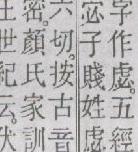 字作虙。五經
宓子賤姓虙
切。按古音
密。顏氏家訓
世紀云。伏